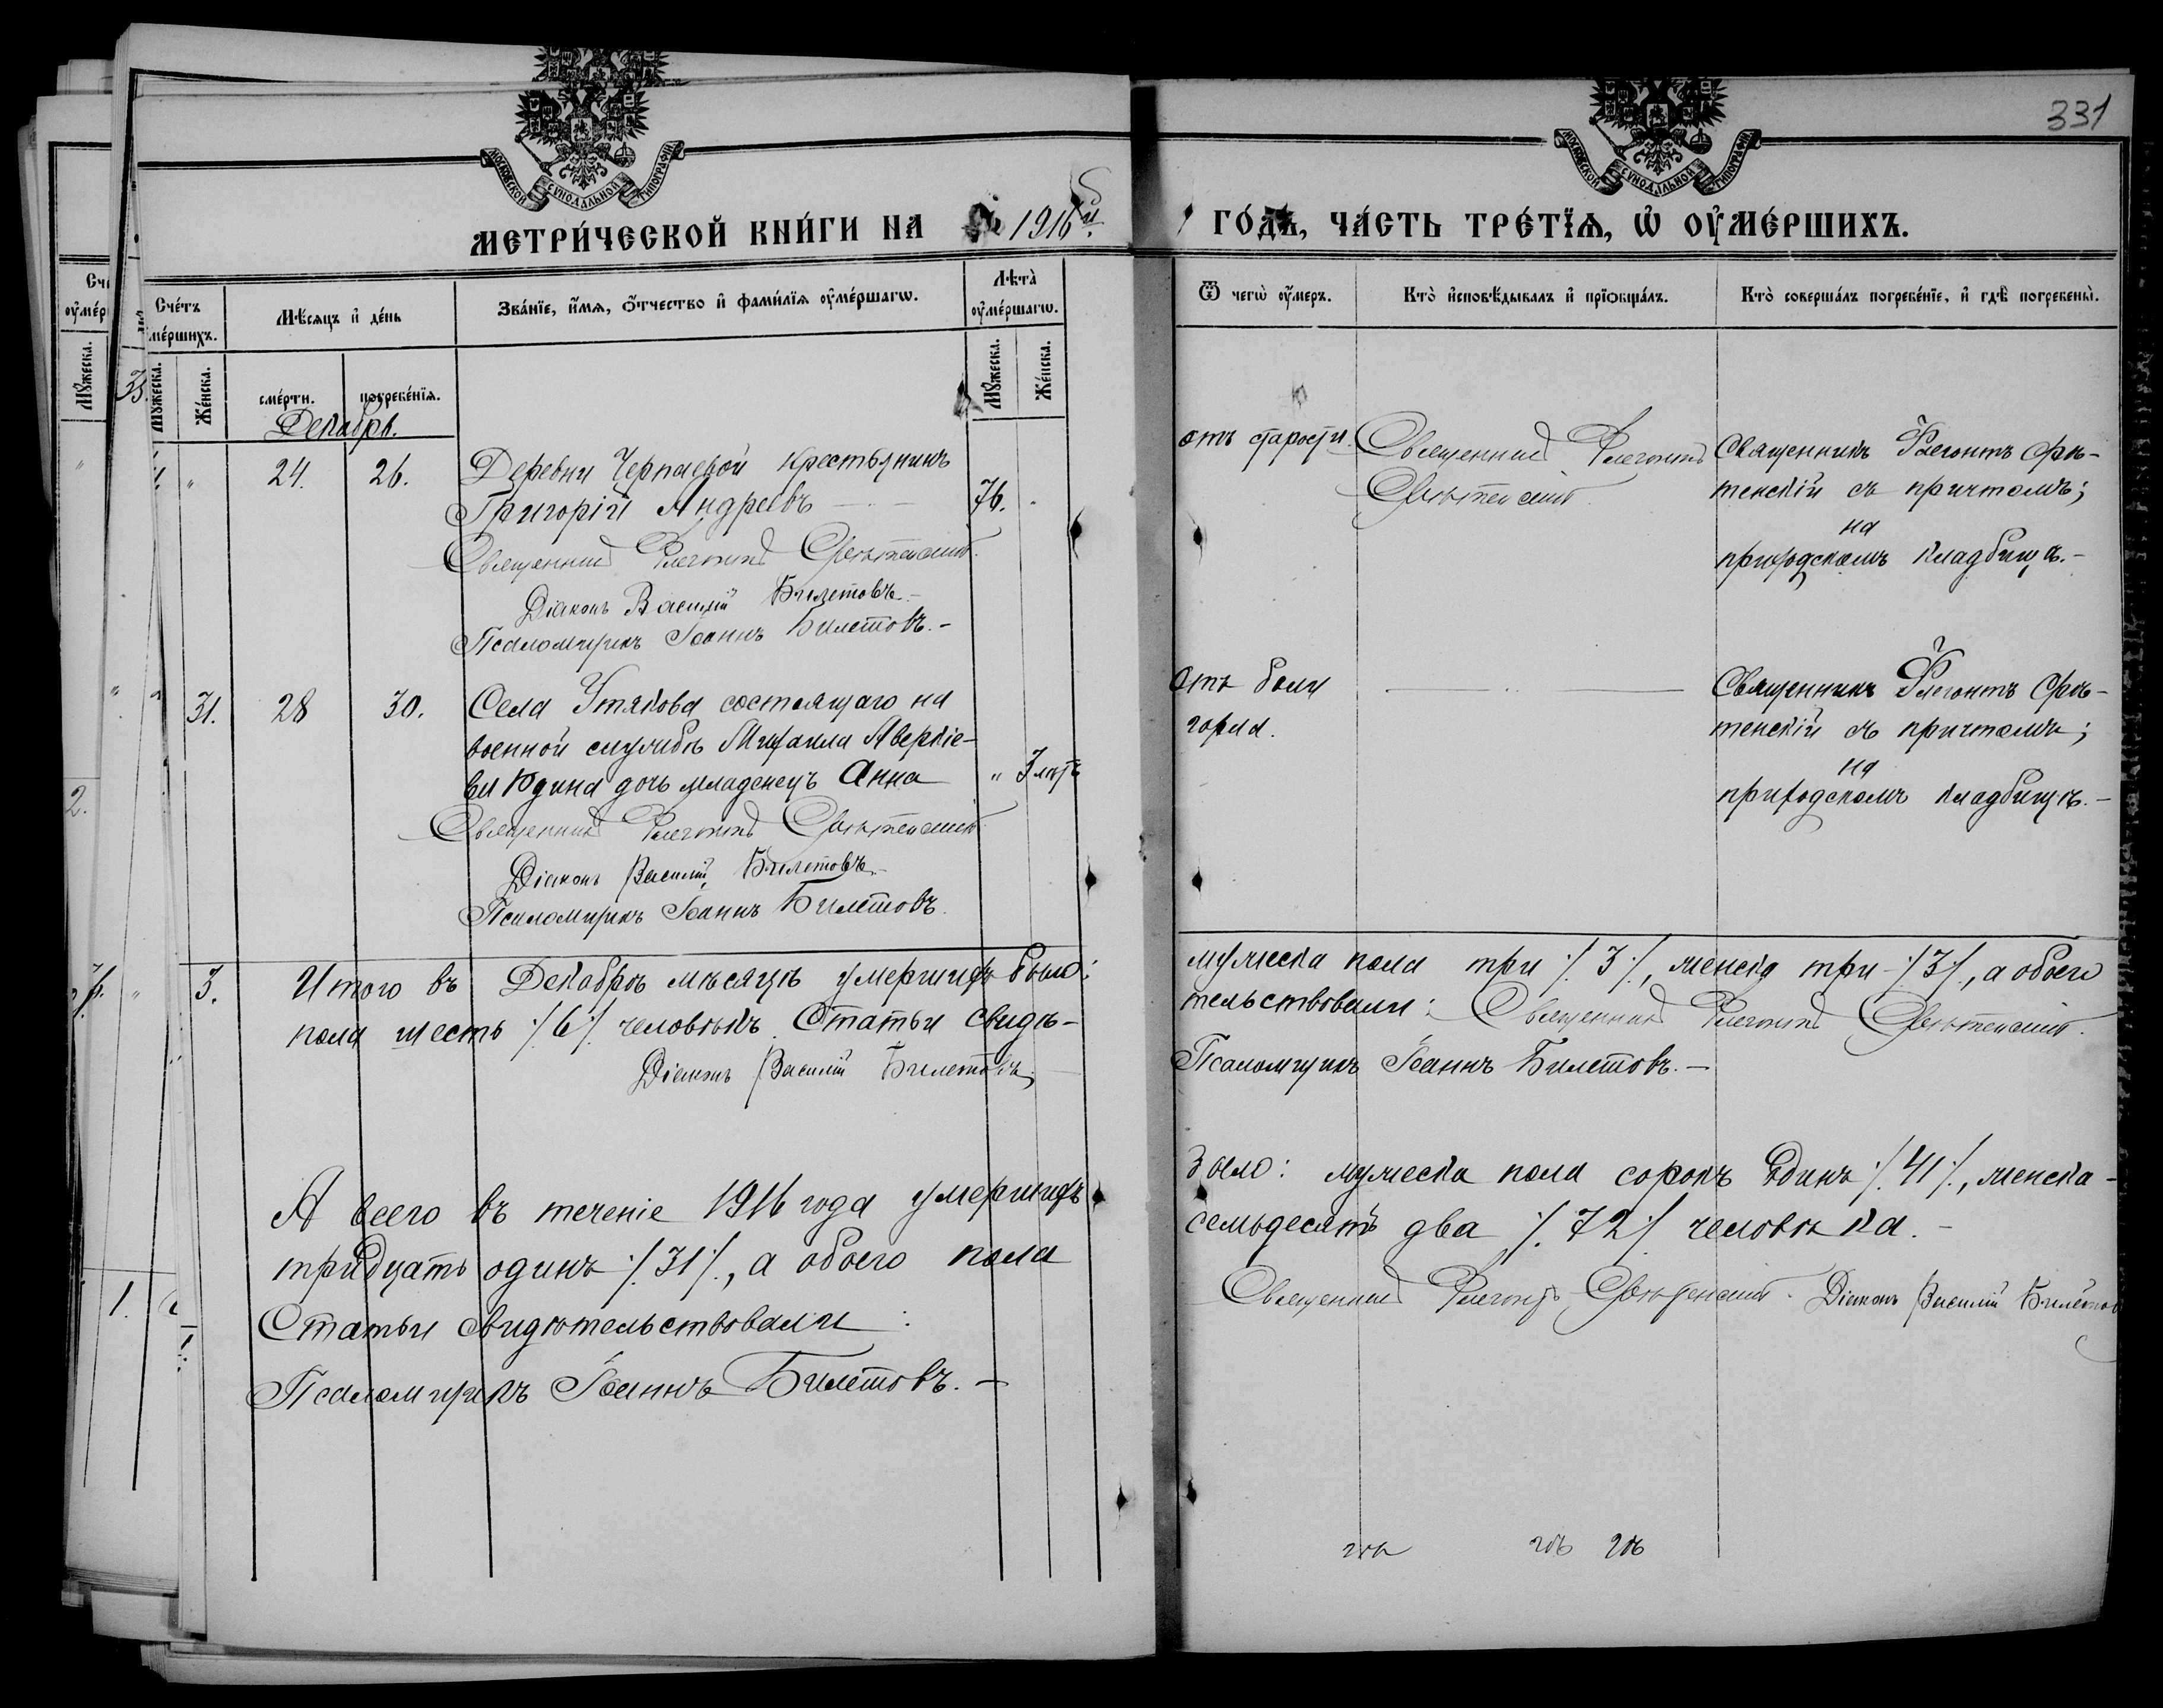 331
МОСКОВСКОЙ СѴНОДАЛЬНОЙ ТИПОГРАФІИ
МОСКОВСКОЙ СѴНОДАЛЬНОЙ ТИПОГРАФІИ
МЕТРИ́ЧЕСКОЙ КНИ́ГИ НА 1916й
ГО́ДЪ, ЧА́СТЬ ТРЕ́ТЇѦ, Ѽ ОУ҆МЕ́РШИХЪ.
Сче́тъ
мершихъ.
Мꙋжеска.
Же́нска.
Мѣ́сяцъ и҆ де́нь
сме́рти.
погребе́нїѧ.
Зва́нїе, и҆́мѧ, ѻ҆́тчество и҆ фами́лїѧ оу҆ме́ршагѡ.
Лѣта̀
оу҆ме́ршагѡ.
Мꙋжеска.
Же́нска.
Ѿ чегѡ̀ оу҆́меръ.
Кто̀ и҆сповѣ́дывалъ и҆ прїѡбща́лъ.
Кто̀ соверша́лъ погребе́нїе, и҆ гдѣ̀ погребены̀.
Декабрь.
24. 26. Деревни Черпаевой крестьянинъ
Григорій Андреевъ 76.
Священникъ Флегонтъ Срѣтенскій.
Діаконъ Василій Билетовъ.-
Псаломщикъ Іоаннъ Билетовъ.-
отъ старости
Священникъ Флегонтъ
Срѣтенскій
Священникъ Флегонтъ Срѣ-
тенскій съ причтомъ;
на
приходскомъ кладбищѣ.-
31. 28 30. Села Утякова состоящаго на
военной службѣ Михаила Аверкіе-
ва Юдина дочь младенецъ Анна " 3 лѣтъ
Священникъ Флегонтъ Срѣтенскій.
Діаконъ Василій Билетовъ.-
Псаломщикъ Іоаннъ Билетовъ.
Отъ боли
горла.
Священникъ Флегонтъ Срѣ-
тенскій съ причтомъ;
на
приходскомъ кладбищѣ.-
3. Итого въ Декабрѣ мѣсяцѣ умершихъ было:
мужеска пола три ./.3./., женска три ./.3./., а обоего
пола шесть ./.6./. человѣкъ. Статьи свидѣ-
тельствовали: Священникъ Флегонтъ Срѣтенскій.
Діаконъ Василій Билетовъ,
Псаломщикъ Іоаннъ Билетовъ.-
А всего въ теченіе 1916 года умершихъ
было: мужеска пола сорокъ одинъ ./.41./., женска -
тридцать одинъ ./.31./., а обоего пола
семьдесятъ два ./.72./. человѣка.-
Статьи свидѣтельствовали:
Священникъ Флегонтъ Срѣтенскій. Діаконъ Василій Билетов
Псаломщикъ Іоаннъ Билетовъ.-